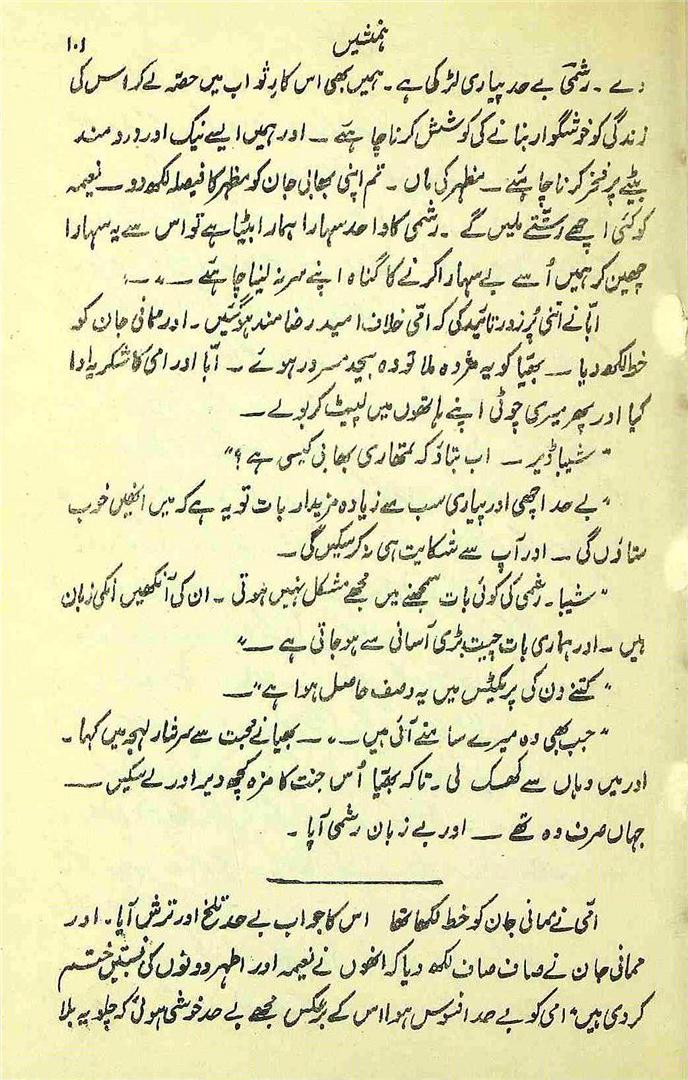 ہمنشیں ۱۰۱
دے ۔ رشمی بے حد پیاری لڑکی ہے ۔ ہمیں بھی اس کارِ ثواب میں حصہ لے کر اس کی
زندگی کو خوشگوار بنانے کی کوشش کرنا چاہئے ۔ اور ہمیں ایسے نیک اور درد مند
بیٹے پر فخر کرنا چاہئے ۔ مظہر کی ماں ۔ تم اپنی بھابی جان کو مظہر کا فیصلہ لکھ دو ۔ نعیمہ
کو کئی اچھے رشتے ملیں گے ۔ رشمی کا واحد سہارا ہمارا بیٹا ہے تو اس سے یہ سہارا
چھین کر ہمیں اُسے بے سہارا کرنے کا گناہ اپنے سر نہ لینا چاہئے ۔،،۔،
ابّا نے اتنی پُر زور تائید کی کہ امّی خلاف امید رضا مند ہو گئیں ۔ اور ممانی جان کو
خط لکھ دیا ۔ بھیّا کو یہ مژدہ ملا تو وہ بیحد مسرور ہوئے ۔ ابّا اور امی کا شکریہ ادا
کیا اور پھر میری چوٹی اپنے ہاتھوں میں لپیٹ کر بولے ۔
" شیبا ڈیر ۔ اب بتاؤ کہ تمھاری بھابی کیسی ہے ؟"
" بے حد اچھی اور پیاری سب سے زیادہ مزیدار بات تو یہ ہے کہ میں انھیں خوب
ستاؤں گی ۔ اور آپ سے شکایت ہی نہ کر سکیں گی ۔
" شیبا ۔ رشمی کی کوئی بات سمجھنے میں مجھے مشکل نہیں ہوتی ۔ ان کی آنکھیں انکی زبان
ہیں ۔ اور ہماری بات چیت بڑی آسانی سے ہو جاتی ہے ۔"
" کتنے دن کی پریکٹس میں یہ وصف حاصل ہوا ہے "۔
" جب بھی وہ میرے سامنے آئی ہیں ۔،۔ بھیا نے محبت سے سرشار لہجہ میں کہا ۔
اور میں وہاں سے کھسک لی ۔ تاکہ بھیّا اُس جنت کا مزہ کچھ دیر اور لے سکیں ۔
جہاں صرف وہ تھے ۔ اور بے زبان رشمی آپا ۔
امّی نے ممانی جان کو خط لکھا تھا اس کا جواب بے حد تلخ اور ترش آیا ۔ اور
ممانی جان نے صاف صاف لکھ دیا کہ انھوں نے نعیمہ اور اطہر دونوں کی نسبتیں ختم
کر دی ہیں " امی کو بے حد افسوس ہوا اس کے برعکس مجھے بے حد خوشی ہوئی کہ چلو یہ بلا